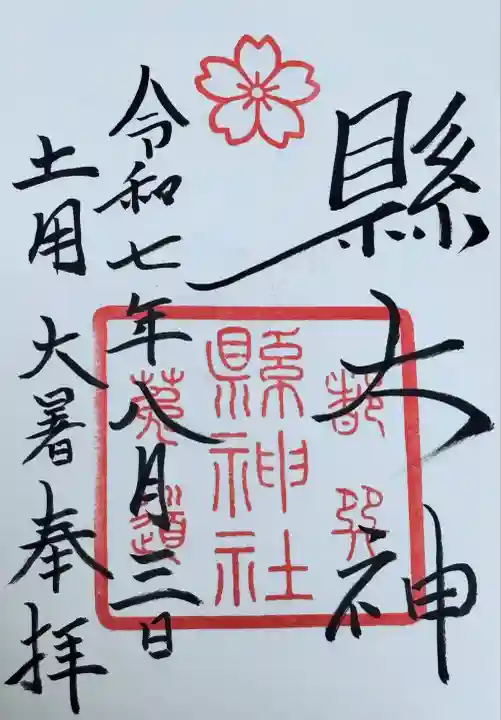 縣大神
令和七年八月三日
土用 大暑 奉拝
都 巽
縣神社
菟道